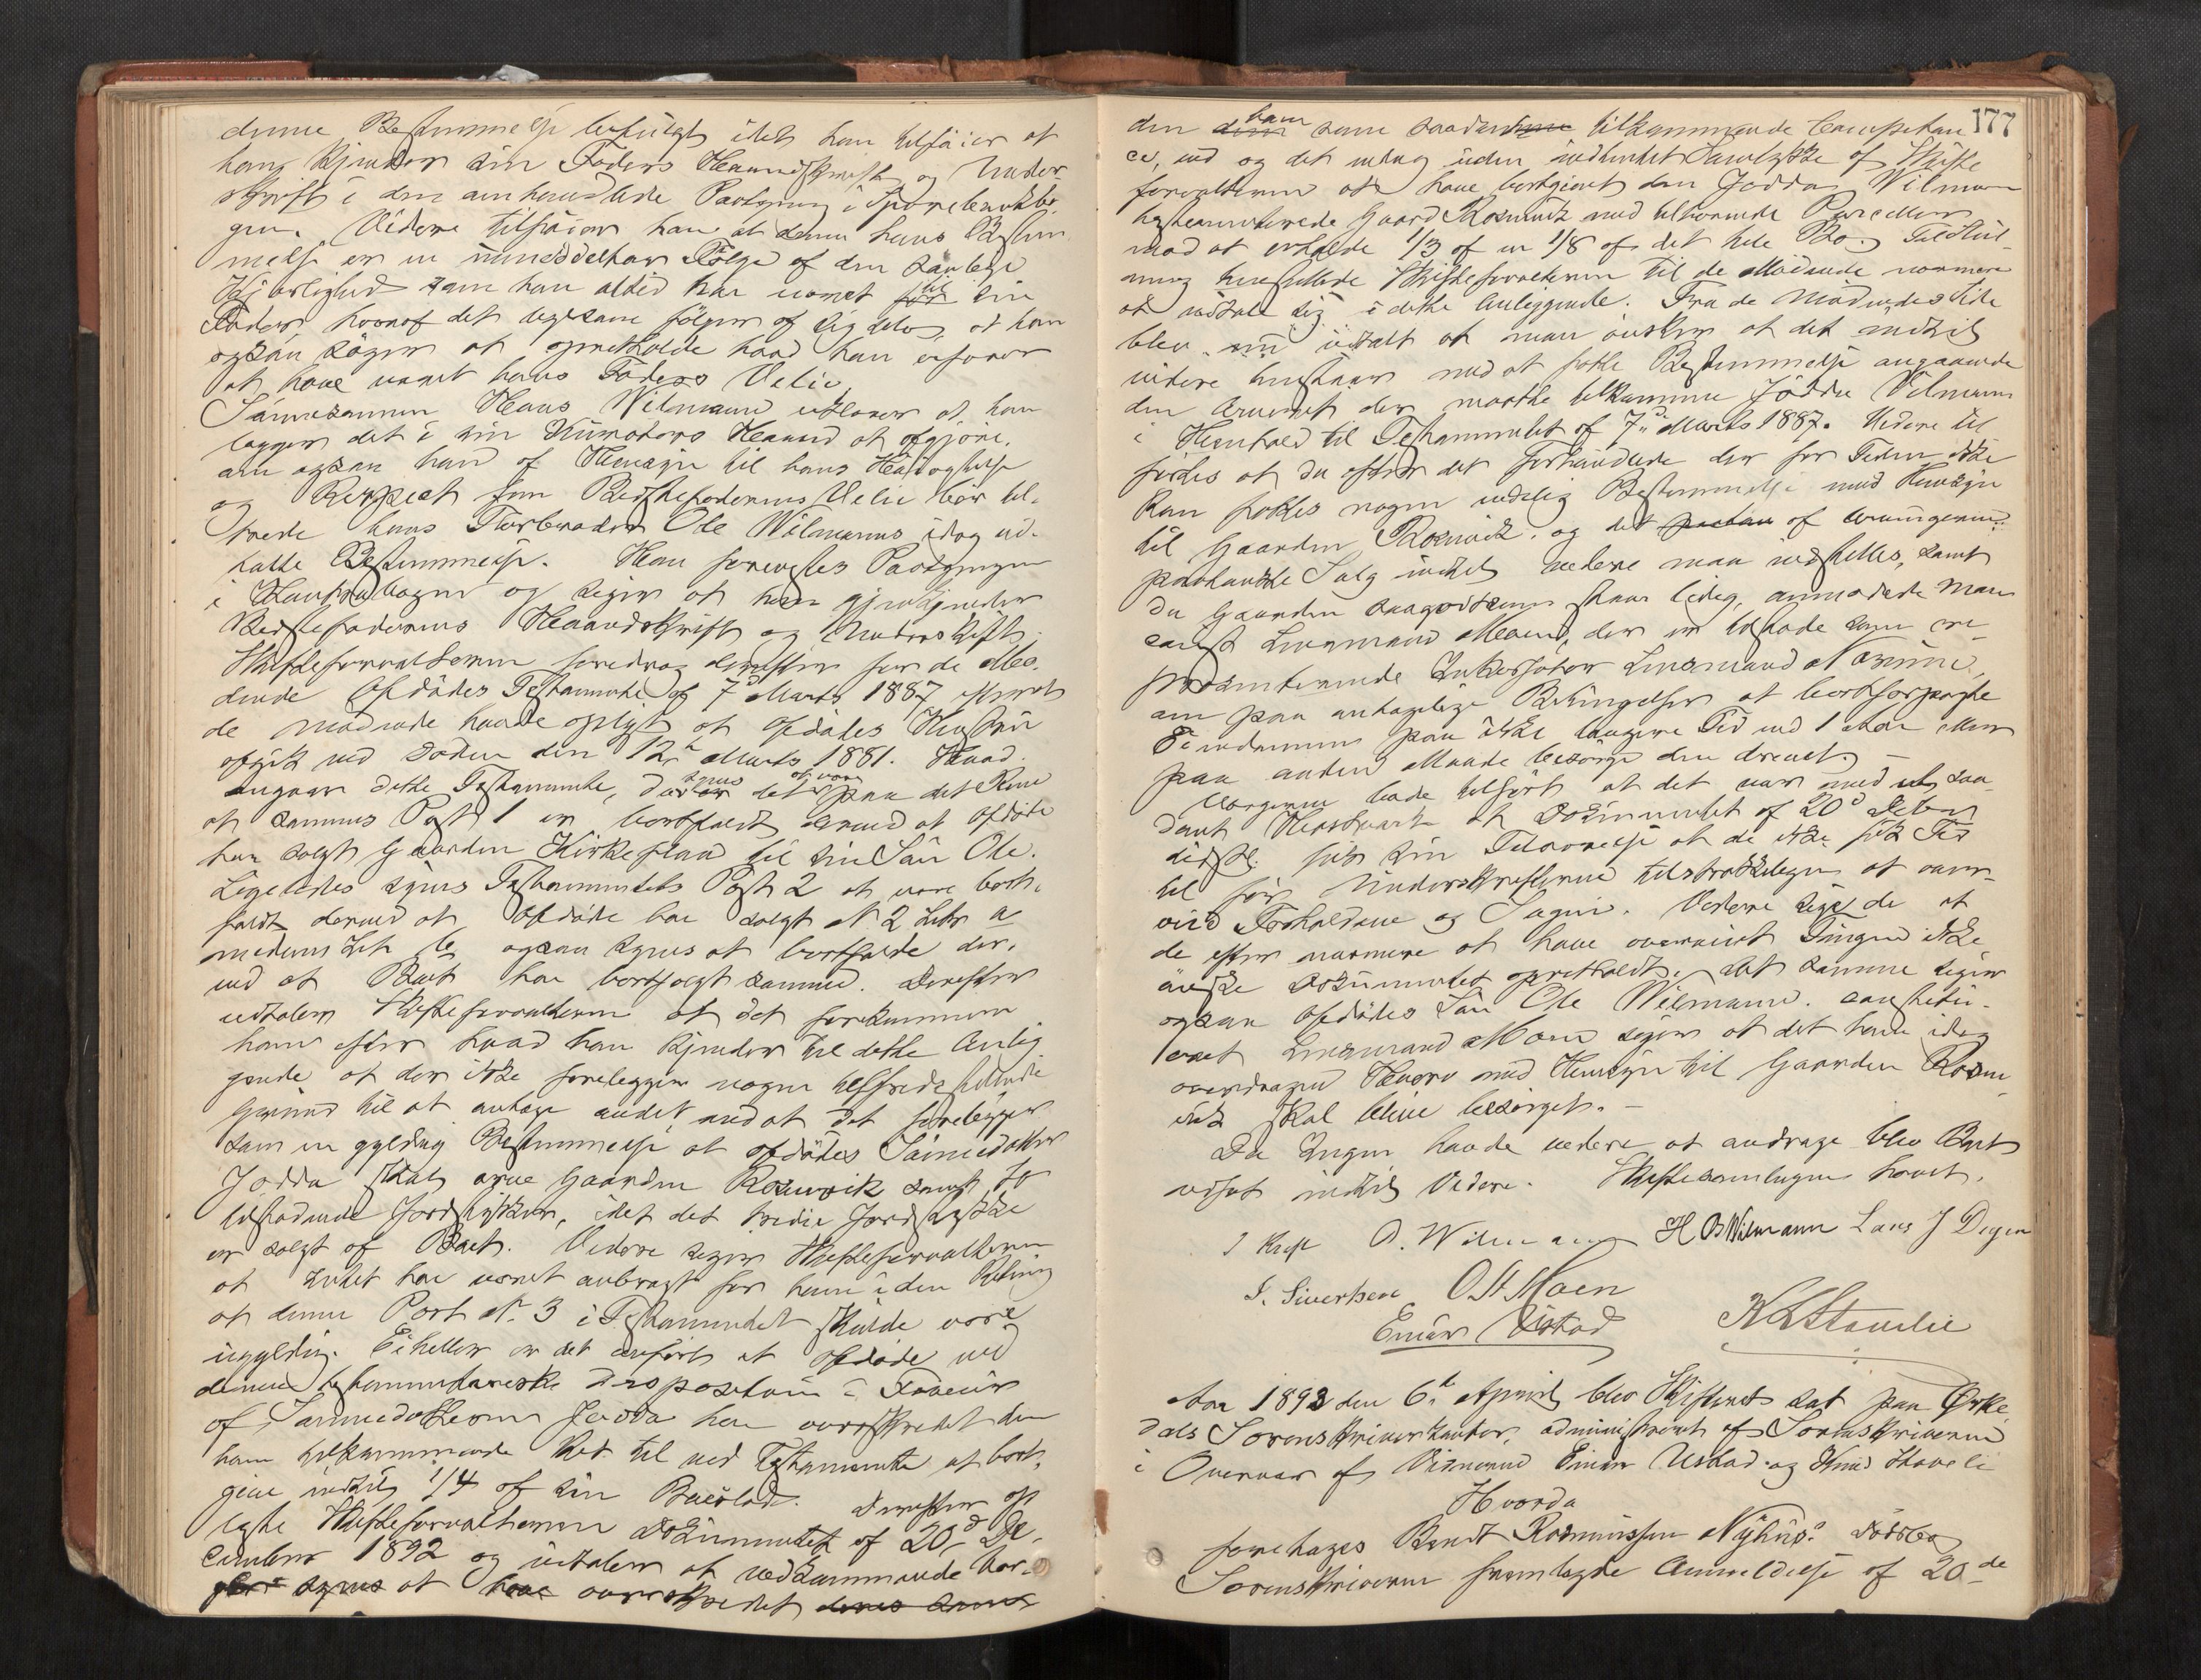 denne Bestemmelse befulgt idet han tilføier at
hans kjender sin Faders Haandskrift og Under-
skrift i den omhandlede Paategning i
gen. Videre tilføier han at denne hans Bestem
melse er en umiddelbar Følge af den sønlige
Kjærlighed som han altid har næret for til sin
Fader, hvoraf det ligesom følger af sig selv, at han
ogsaa søger at opretholde hvad han erfarer
at have været hans Faders Villie.
Sønnesønnen Hans Wilmann udlover at han
lægger det i sin Kurators Haand at afgjøre,
om ogsaa han af Hensyn til hans Høiagtelse
og Respect for Bedstefaderens Villie bør til-
træde hans Farbroder Ole Wilmanns idag ud-
talte Bestemmelse. Han forevistes Paategningen
i og siger at han gjenkjender
Bedstefaderens Haandskrift og Underskrift.
Skifteforvalteren foredrog derefter for de Mø-
dende Afdødes Testamente af 7d Marts 1887 efterat
de mødende havde oplyst at Afdødes Hustru
afgik ved Døden den 12te Marts 1881. Hvad
angaar dette Testamente, da synes det at være paa det Rene
at sammes Post 1 er bortfaldt derved at Afdøde
har solgt Gaarden Kirkeflaa til sin Søn Ole.
Ligeledes synes Testamentets Post 2 at være bort-
faldt derved at Afdøde har solgt N 2 Litr a
medens Litr b, ogsaa synes at bortfalde der-
ved at Boet har bortsolgt samme. Derefter
udtaler Skifteforvalteren at det forekommer
ham efter hvad han kjender til dette Anlig
gende, at der ikke foreligger nogen tilfredsstillende
Grund til at antage andet end at det foreligger
som en gyldig Bestemmelse at afdødes Sønnedatter
Jodda skal arve Gaarden Rosnvik samt to
tilstødende Jordstykker, idet det tredie Jordstykke
er solgt af Boet. Videre siger Skifteforvalteren
at Intet har været anbragt for ham i den Retning
at denne Post N. 3 i Testamentet skulde være
ugyldig. Eiheller er det anført at Afdøde ved
denne testamentariske Disposition i Faveur
af Sønnedatteren Jodda har overskredet den
ham tilkommende Ret til ved Testamente at bort-
give indtil 1/4 af sin Boeslod. Derefter op
læste Skifteforvalteren Dokumentet af 20d De-
cember 1892 og udtaler at vedkommende Vær-
ger synes at have overskredet deres
den dem ham som saadan tilkommende Competan
ce, ved og det endog uden indhentet Samtykke af Skifte
forvalteren at have bortgivet den Jodda Wilmann
testamenterede Gaard Rosnvik med tilhørende Parceller
mod at erholde 1/3 af en 1/8 af det hele Bo. Tilslut-
ning henstillede Skifteforvalteren til de Mødende nærmere
at udtale sig i dette Anliggende. Fra de Mødendes Side
blev udtalt at man ønsker at det indtil
videre henstaar med at fatte Bestemmelse angaaende
den Arveret der maatte tilkomme Jodda Wilmann
i Henhold til Testamentet af 7d Marts 1887. Videre til
førtes at da efter det Forhandlede der for Tiden ikke
kan fattes nogen endelig Bestemmelse med Hensyn
til Gaarden Rosnvik, og det af Arvingerne
paatænkte Salg indtil videre maa indstilles, samt
da Gaarden saagodtsom staar ledig, anmodede Man
const. Lensmand Moen, der er tilstede som re-
præsenterende Inkassator Lensmand Norum,
om paa antagelige Betingelser at bortforpagte
Eiendommen paa ikke længere Tid end 1 Aar eller
paa anden Maade besørge den drevet. –
Værgerne bade tilført at det var med et saa-
dant Hastværk at Dokumentet af 20d Decbr
fik sin Tilværelse at de ikke fik Tid
til før Underskrifterne tilstrækkeligen at over-
veie Forholdene og Sagen. Videre siger de at
de efter nærmere at have overveiet Tingen ikke
ønske Dokumentet opretholdt. Det samme siger
ogsaa Afdødes Søn Ole Wilmann. constitu-
eret Lensmand Moen siger at det ham idag
overdragne Hverv med Hensyn til Gaarden Rosn
vik skal blive besørget. –
Da Ingen havde videre at andrage blev Boet
udsat indtil Videre. Skiftesamlingen hævet.
J Krist O. Wilmann H O Wilmann Lars J Degen
I. Sivertsen O St Moen
Einar Ustad K L Stavlie
Aar 1893 den 6te April blev Skifteret sat paa Orke
dals Sorenskriverkontor, administreret af Sorenskriveren
i Overvær af Vidnerne Einar Ustad og Knud Stavli
Hvorda
foretages Bendt Rasmussen Nyhus' Dødsbo
Sorenskriveren fremlagde Anmeldelse af 20de
177